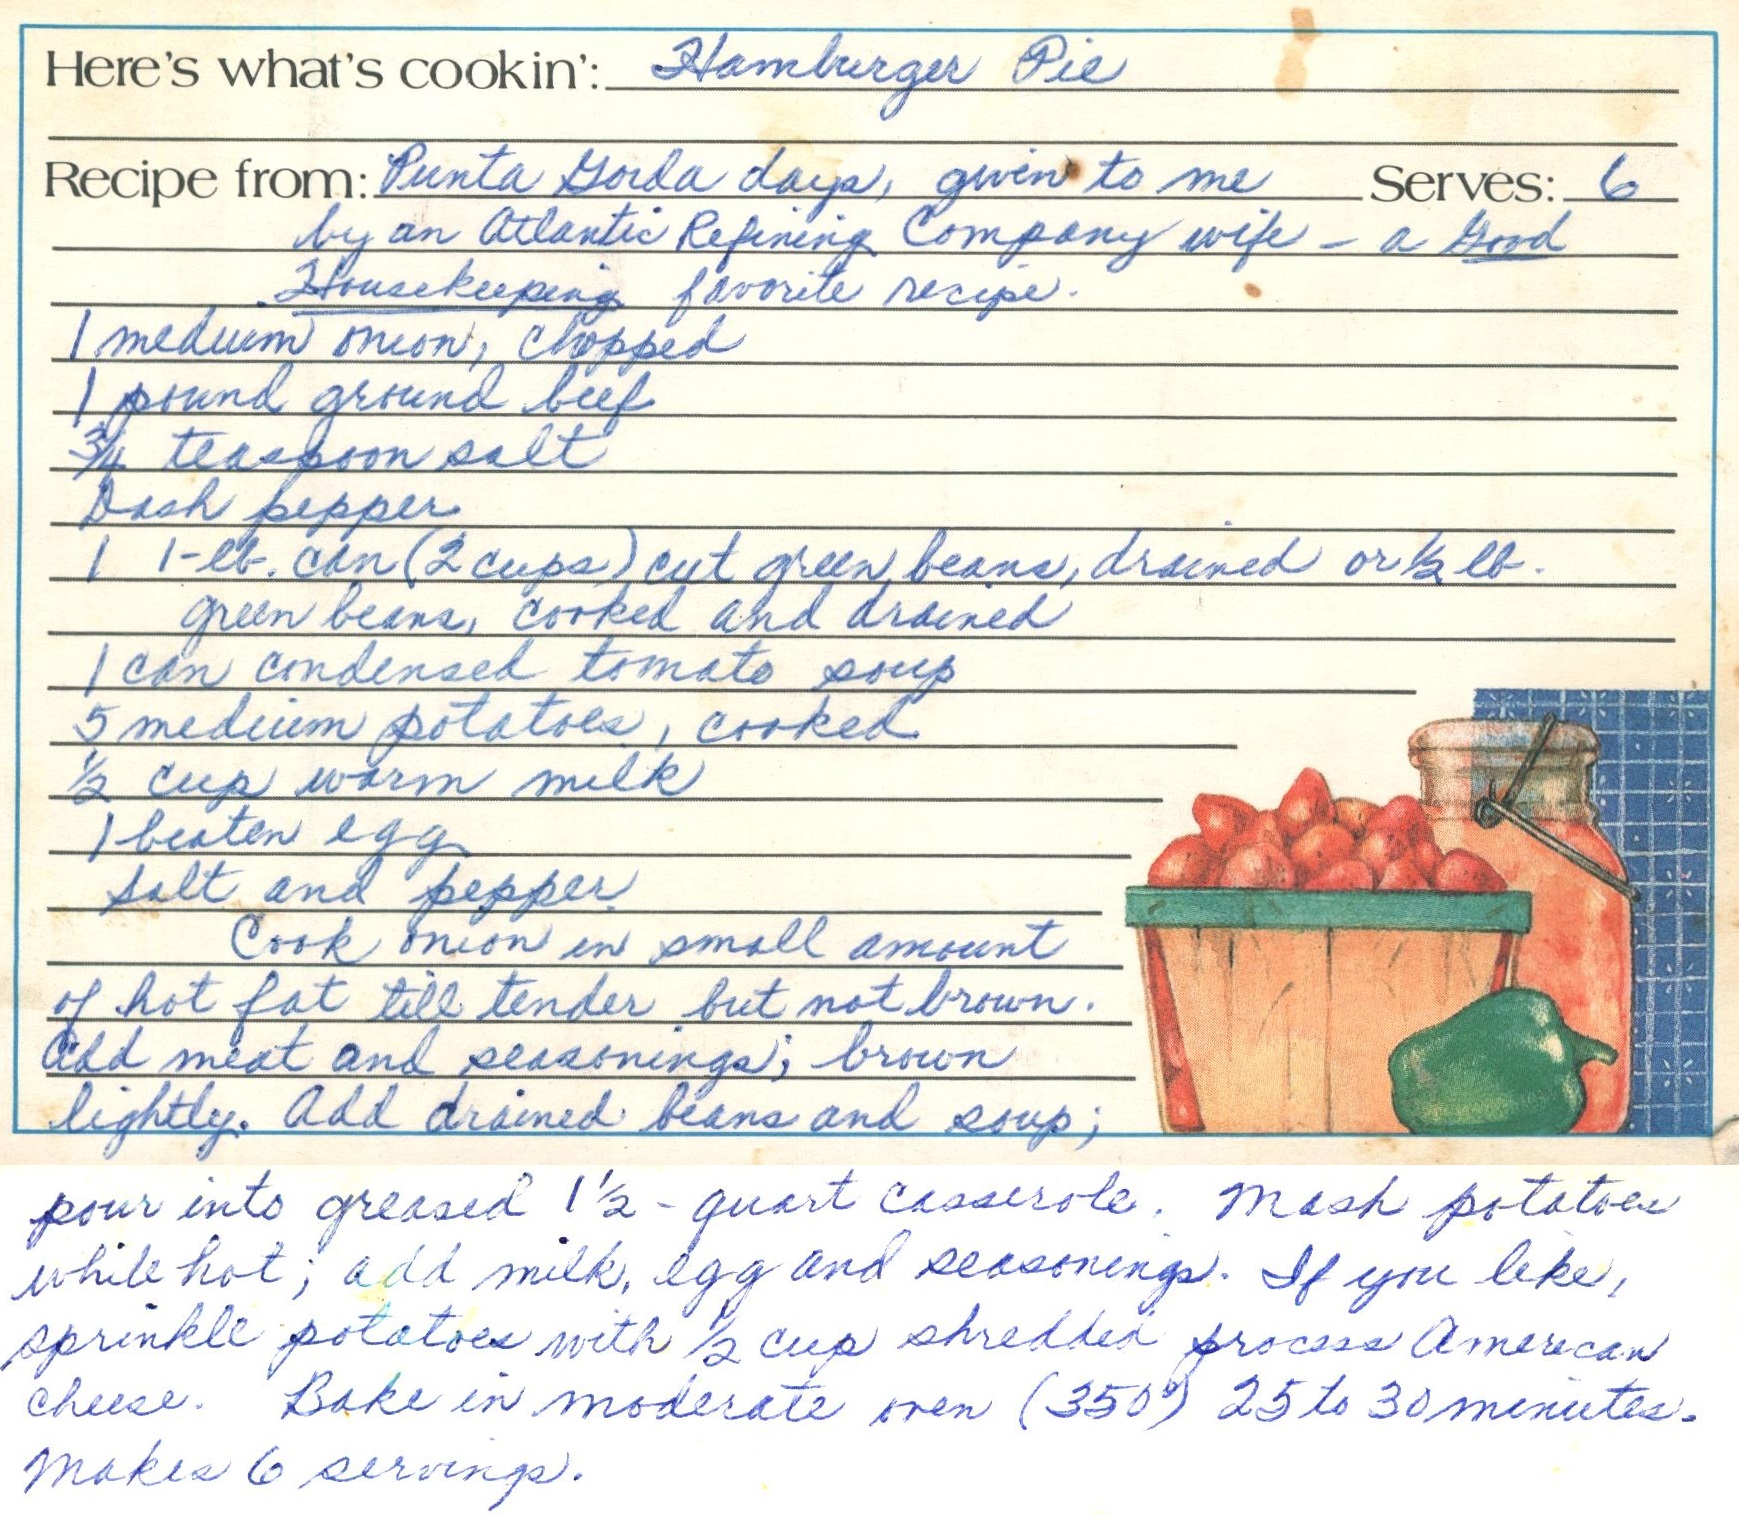 Here's what's cookin': Hamburger Pie
Recipe from: Punta Gorda days, given to me Serves: 6
by an Atlantic Refining Company wife - a Good
Housekeeping favorite recipe.
1 medium onion, chopped
1 pound ground beef
3/4 teaspoon salt
Dash pepper
1 1-lb. can (2 cups) cut green beans, drained or 1/2 lb.
green beans, cooked and drained
1 can condensed tomato soup
5 medium potatoes, cooked
1/2 cup warm milk
1 beaten egg
Salt and pepper
Cook onion in small amount
of hot fat till tender but not brown.
Add meat and seasonings; brown
lightly. Add drained beans and soup;
pour into greased 1 1/2-quart casserole. Mash potatoes
while hot; add milk, egg and seasonings. If you like,
sprinkle potatoes with 1/2 cup shredded process American
cheese. Bake in moderate oven (350°) 25 to 30 minutes.
Makes 6 servings.